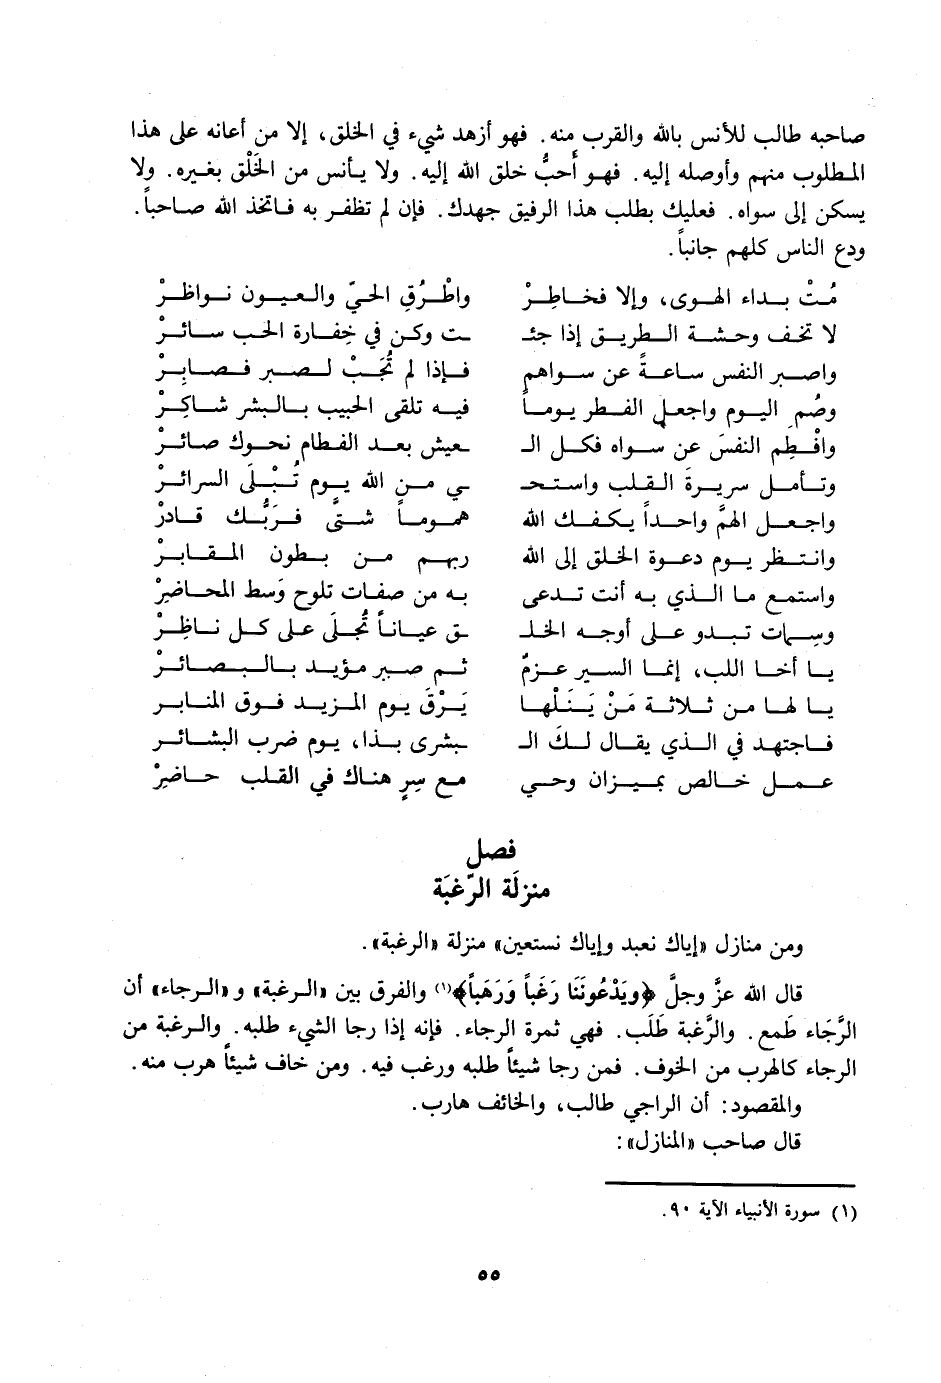 صاحبه طالب للأنس بالله والقرب منه. فهو أزهد شيء في الخلق، إلا من أعانه على هذا
المطلوب منهم وأوصله إليه. فهو أحبُّ خلق الله إليه. ولا يأنس من الخَلْق بغيره. ولا
يسكن إلى سواه. فعليك بطلب هذا الرفيق جهدك. فإن لم تظفر به فاتخذ الله صاحباً.
ودع الناس كلهم جانباً.
مُتْ بداء الهوى، وإلا فخاطِرْ واطْرُقِ الحيّ والعيون نواظرْ
لا تخف وحشة الطريق إذا جئـ ـت وكن في خفارة الحب سائرْ
واصبر النفس ساعةً عن سواهم فإذا لم تُجَبْ لصبر فصابِرْ
وصُمِ اليوم واجعل الفطر يوماً فيه تلقى الحبيب بالبشر شاكِرْ
وافْطِم النفسَ عن سواه فكل الـ ـعيش بعد الفطام نحوك صائرْ
وتأمل سريرةَ القلب واستحـ ـي من الله يوم تُبْلَى السرائرْ
واجعل الهمَّ واحداً يكفك الله هموماً شتَّى فرَبُّك قادرْ
وانتظر يوم دعوة الخلق إلى الله ربهم من بطون المقابرْ
واستمع ما الذي به أنت تدعى به من صفات تلوح وَسط المحاضرْ
وسمات تبدو على أوجه الخلـ ـق عياناً تُجلَى على كل ناظِرْ
يا أخا اللب، إنما السير عزمٌ ثم صبر مؤيد بالبصائرْ
يا لها من ثلاثة مَنْ يَنَلْها يَرْقَ يوم المزيد فوق المنابر
فاجتهد في الذي يقال لكَ الـ ـبشرى بذا، يوم ضرب البشائر
عمل خالص بميزان وحي مع سِرٍ هناك في القلب حاضِرْ
فصل
منزلَة الرّغبَة
ومن منازل «إياك نعبد وإياك نستعين» منزلة «الرغبة».
قال الله عزَّ وجلَّ ﴿ويَدْعُونَنَا رَغَباً وَرَهَباً﴾(١) والفرق بين «الرغبة» و«الرجاء» أن
الرَّجَاء طَمع. والرَّغبة طَلَب. فهي ثمرة الرجاء. فإنه إذا رجا الشيء طلبه. والرغبة من
الرجاء كالهرب من الخوف. فمن رجا شيئاً طلبه ورغب فيه. ومن خاف شيئاً هرب منه.
والمقصود: أن الراجي طالب، والخائف هارب.
قال صاحب «المنازل»:
(١) سورة الأنبياء الآية ٩٠.
٥٥